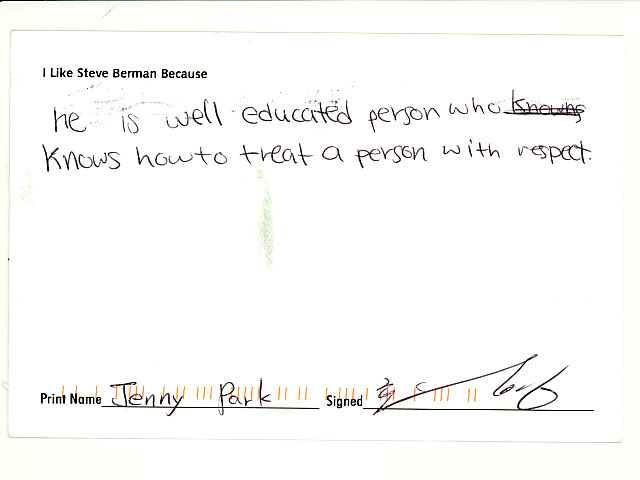 I Like Steve Berman Because
he is well educated person who knowns
knows how to treat a person with respect.
Print Name Jenny Park Signed